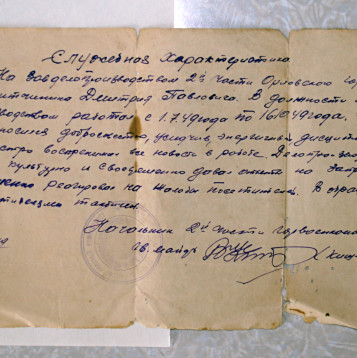 Служебная характеристика
На завделопроизводством 2й части Орловского гор
Дмитрия Павловича. В должности
водством работал с 1.7.49года по 16.10.49года.
носился добросовестно, усидчив, энергичен, дисцип
стро воспринимал все новости в работе. Делопроизв
культурно и своевременно давал ответы на запр
реагировал на жалобы посетителей. В обра
тактичен.
Начальник 2й части горвоенкома
гв. майор